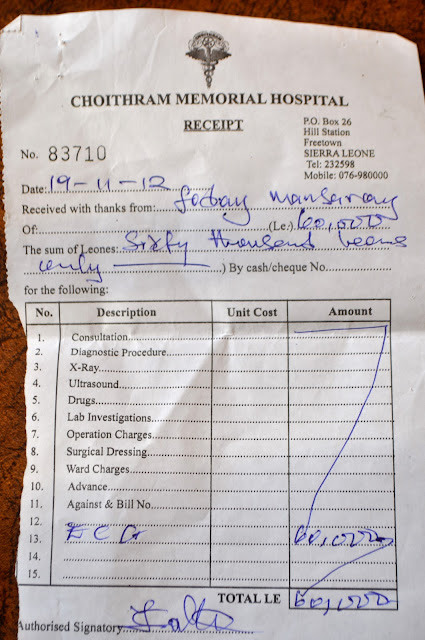 CHOITHRAM MEMORIAL HOSPITAL
RECEIPT
P.O. Box 26
Hill Station
Freetown
SIERRA LEONE
Tel: 232598
Mobile: 076-980000
No. 83710
Date: 19-11-12
Received with thanks from: Mansaray
Of: (Le.) 60,000
The sum of Leones: Sixty thousand leones
only ) By cash/cheque No.
for the following:
No. Description Unit Cost Amount
1. Consultation
2. Diagnostic Procedure
3. X-Ray
4. Ultrasound
5. Drugs
6. Lab Investigations
7. Operation Charges
8. Surgical Dressing
9. Ward Charges
10. Advance
11. Against & Bill No.
12.
13. ECG 60,000
14.
15.
TOTAL LE 60,000
Authorised Signatory